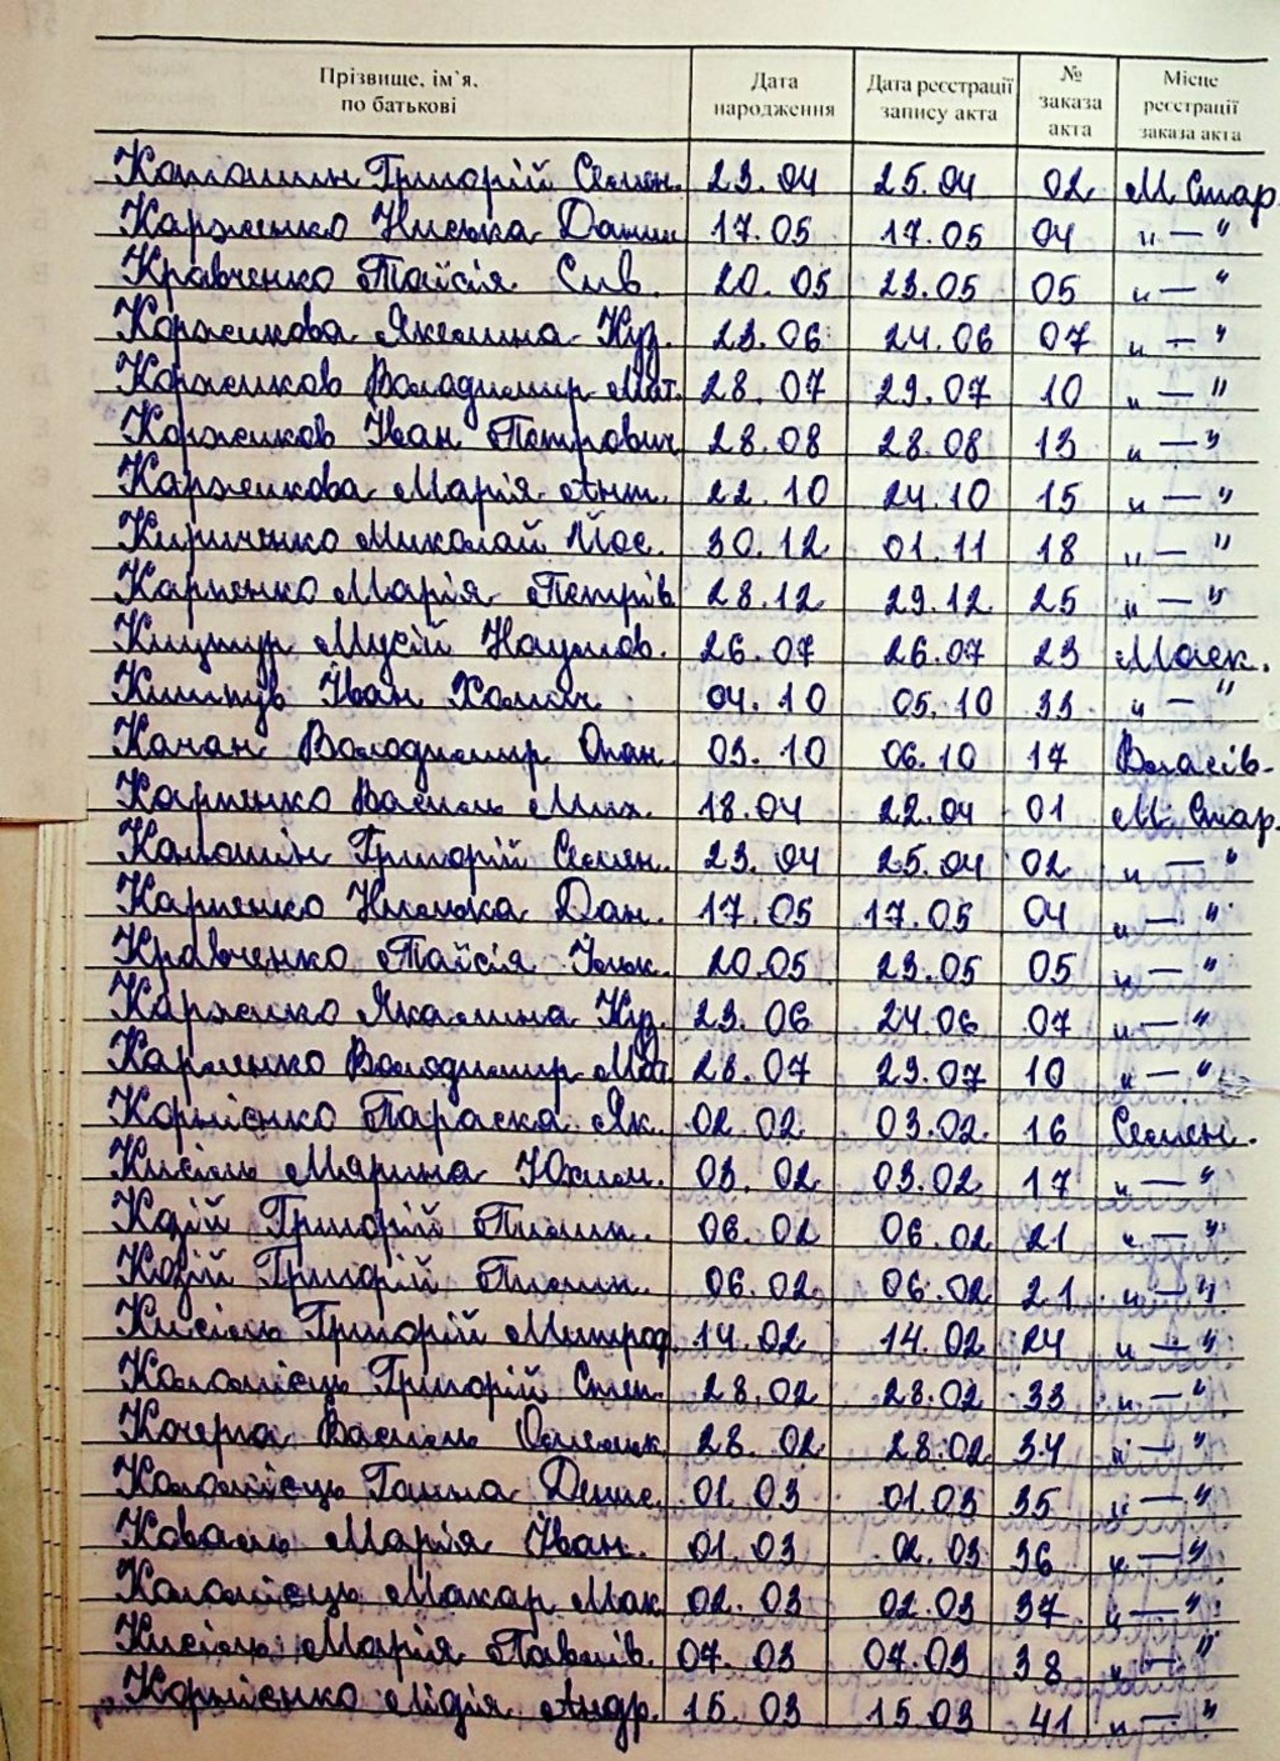 Прізвище, ім`я, по батькові Дата народження Дата реєстрації запису акта № заказа акта Місце реєстрації заказа акта
Григорій Семен. 23.04 25.04 02 М Стар.
Карженко Ниська Данил 17.05 17.05 04 " — "
Кравченко Таїсія 20.05 23.05 05 " — "
Коржикова Якелина Куз. 23.06 24.06 07 " — "
Коржиков Володимир Мат. 28.07 29.07 10 " — "
Коржиков Іван Петрович 28.08 28.08 13 " — "
Каржикова Марія Ант. 22.10 24.10 15 " — "
Кириченко Миколай Йос. 30.12 01.11 18 " — "
Карпенко Марія Петрів 28.12 29.12 25 " — "
Мусій Наумов. 26.07 26.07 23 Моск.
Іван Хомич 04.10 05.10 33 " — "
Качан Володимир Опан. 03.10 06.10 17 Власів-
Карпенко Василь Мих. 18.04 22.04 01 М. Стар.
Григорій Семен. 23.04 25.04 02 " — "
Карпенко Дан. 17.05 17.05 04 " — "
Кравченко Таїсія 20.05 23.05 05 " — "
Якалина Куз. 23.06 24.06 07 " — "
Володимир Мат. 28.07 29.07 10 " — "
Корнієнко Параска Як. 02.02 03.02. 16 Семен.
Кисіль Марина Юхим. 03.02 03.02 17 " — "
Григорій Пилип. 06.02 06.02 21 " — "
Козій Григорій Пилип. 06.02 06.02 21 " — "
Кисіль Григорій Митрод. 14.02 14.02 24 " — "
Коломієць Григорій Степ. 28.02 28.02 33 " — "
Кочерга Василь Олексик 28.02 28.02 34 " — "
Коломієць Ганна Денис. 01.03 01.03 35 " — "
Коваль Марія Іван. 01.03 02.03 36 " — "
Коломієць Макар Мак 02.03 02.03 37 " — "
Кисіль Марія Павлів. 07.03 07.03 38 " — "
Корнієнко Лідія Андр. 15.03 15.03 41 " — "